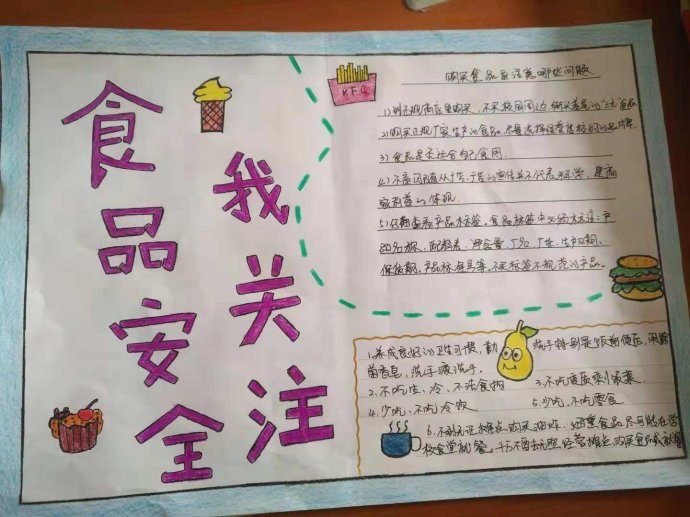 食品安全
我关注
KFC
购买食品宜注意哪些问题
1)到正规商店里购买,不买校园周边、街头巷尾的"三无"食品
2)购买正规厂家生产的食品,尽量选择信誉度较好的品牌
3)食品是否适合自己食用
4)不盲目随从广告,广告的宣传并不代表科学,是商
家利益的体现
5)仔细查看产品标签。食品标签中必须标注:产
品名称、配料表、净含量、厂名、厂址、生产日期、
保质期、产品标准号等。不买标签不规范的产品。
1.养成良好的卫生习惯,勤 洗手特别是饭前便后,用除
菌香皂、洗手液洗手。
2.不吃生、冷、不洁食物 3.不吃变质剩饭菜
4.少吃、不吃冷饮 5.少吃、不吃零食
6.不到无证摊点购买油炸、烟熏食品,尽可能在学
校食堂就餐,千万不要去无照经营摊点购买食品或就餐